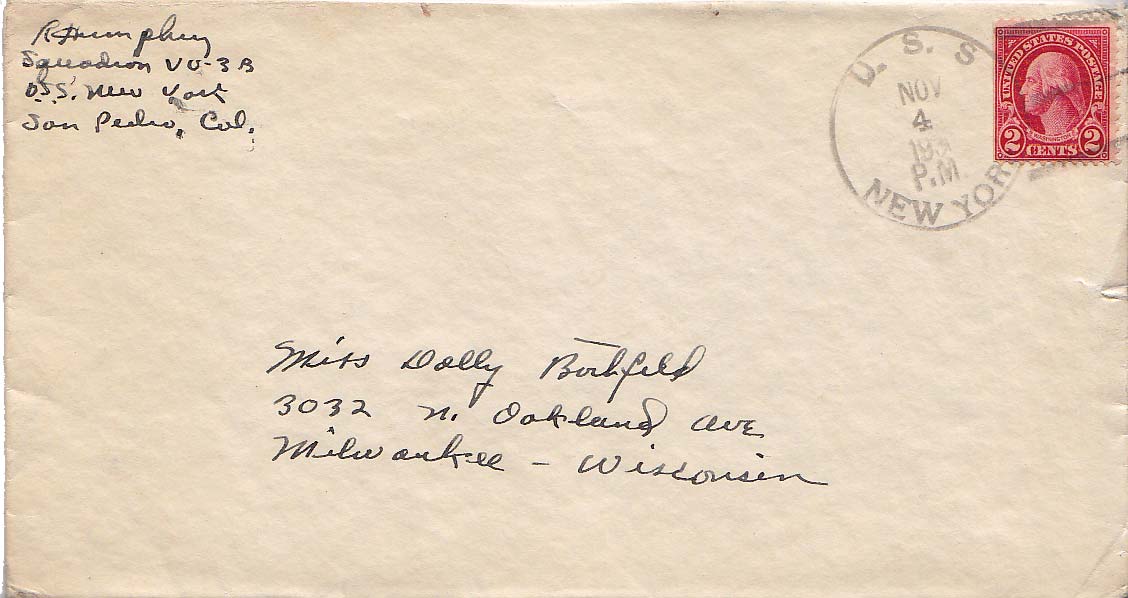 R Humphrey
Squadron VO-3B
U.S.S. New York
San Pedro, Cal.
U. S. S
NEW YOR
NOV
4
193
P.M.
UNITED STATES POSTAGE
WASHINGTON
2 CENTS 2
Miss Dolly
3032 N. Oakland Ave
Milwaukee - Wisconsin